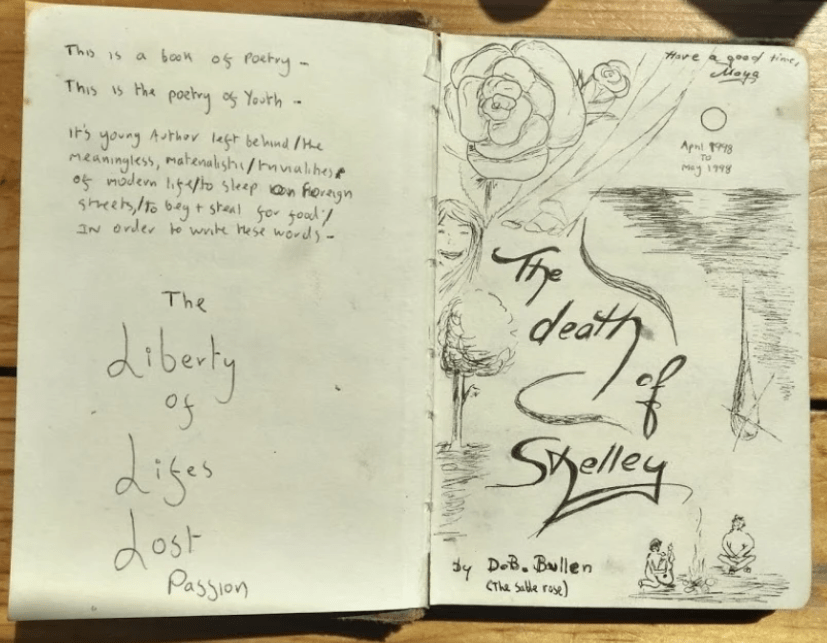 This is a book of Poetry –
This is the poetry of Youth –
It's young Author left behind/the
meaningless, materialistic/trivialities
of modern life/to sleep on Foreign
streets,/to beg + steal for food/
IN order to write these words –
The
Liberty
of
Lifes
Lost
Passion
Have a good time,
Maya
April 1998
TO
May 1998
The
death
of
Shelley
by D.B. Bullen
(The sable rose)